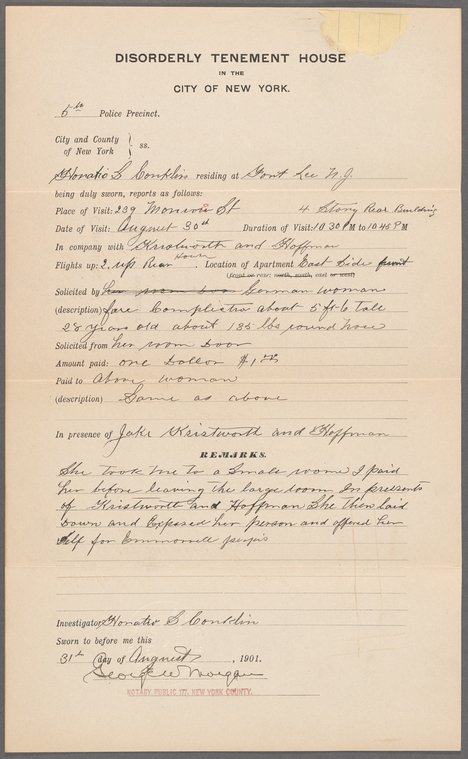 DISORDERLY TENEMENT HOUSE
IN THE
CITY OF NEW YORK.
5th Police Precinct.
City and County
of New York } ss.
Horatio S Conklin residing at Fort Lee N.J.
being duly sworn, reports as follows:
Place of Visit: 239 Monroe St 4 Story Rear Building
Date of Visit: August 30th Duration of Visit: 10 30 P M to 10.45 P M
In company with Kristworth and Hoffman
Flights up: 2. up Rear House. Location of Apartment East Side front
(front or rear; north, south, east or west)
Solicited by her room door German woman
(description) fare Complictio about 5 ft 6 tall
28 years old about 135 lbs round nose
Solicited from her room Door
Amount paid: one Dollar $1.00
Paid to above woman
(description) Same as above
In presence of Jake Kristworth and Hoffman
REMARKS.
She took me to a small room I paid
her before leaving the large room In presents
of Kristworth and Hoffman She then laid
Down and Exposed her person and offered her
self for
Investigator Horatio S Conklin
Sworn to before me this
31st day of August, 1901.
George W Morgan
NOTARY PUBLIC 177, NEW YORK COUNTY.